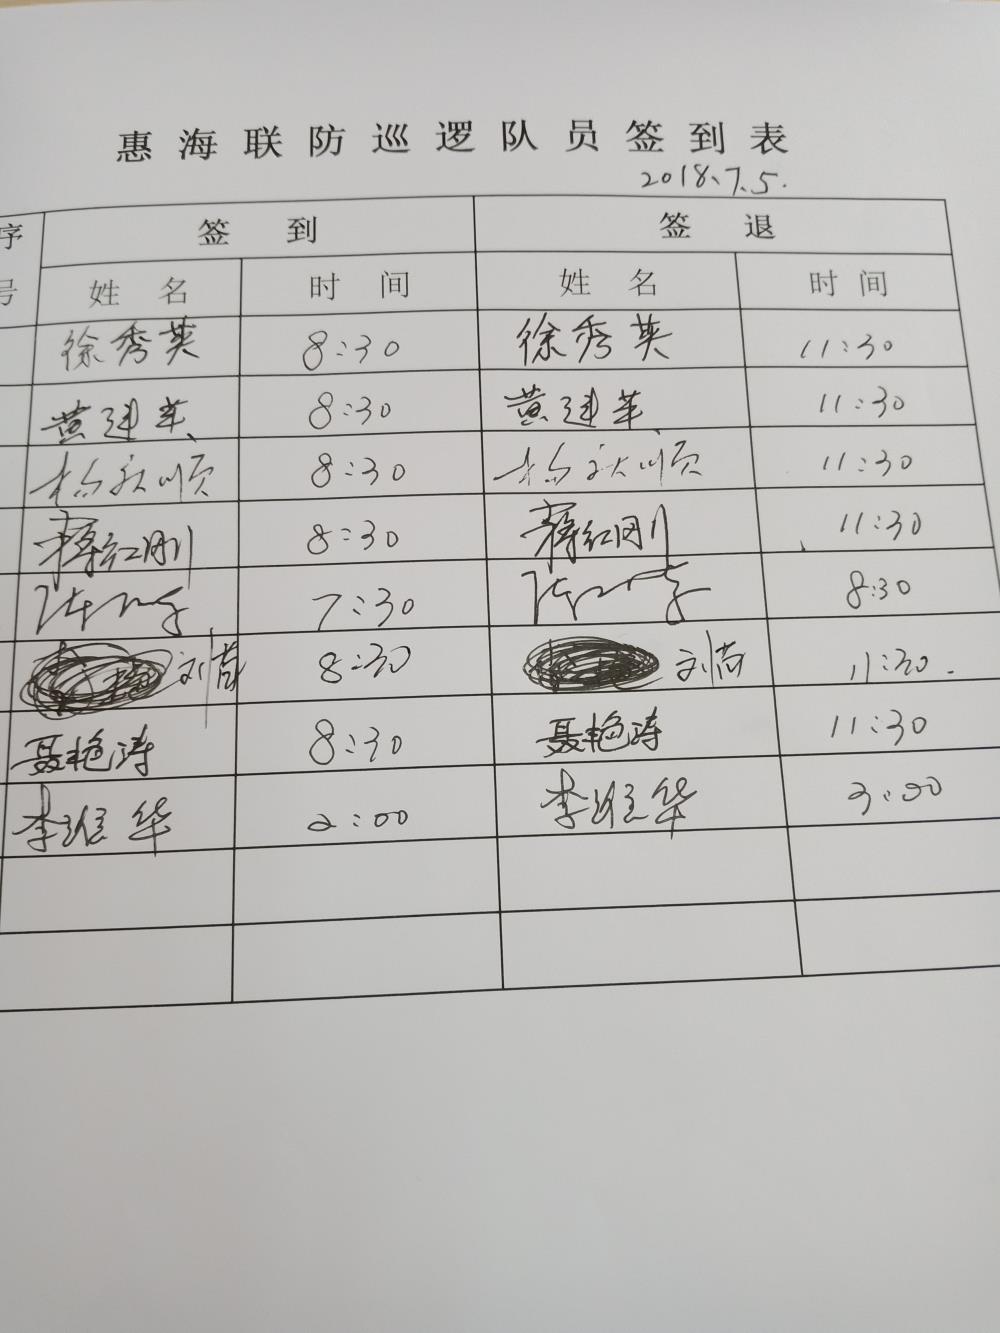 惠海联防巡逻队员签到表
2018.7.5.
序号 签到 签退
姓名 时间 姓名 时间
徐秀英 8:30 徐秀英 11:30
黄建苹 8:30 黄建苹 11:30
杨秋顺 8:30 杨秋顺 11:30
蒋红刚 8:30 蒋红刚 11:30
7:30 8:30
刘茵 8:30 刘茵 11:30.
聂艳涛 8:30 聂艳涛 11:30
李维华 2:00 李维华 3:00